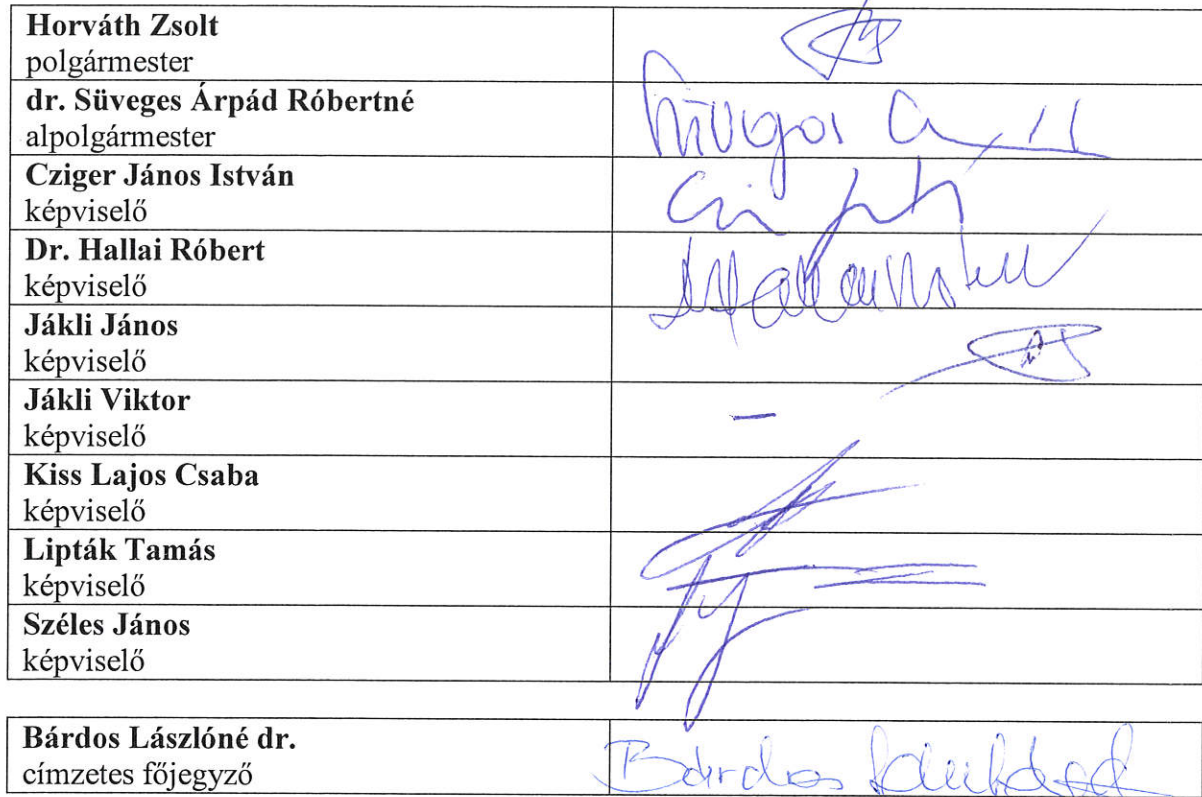 Horváth Zsolt
polgármester
dr. Süveges Árpád Róbertné
alpolgármester
Cziger János István
képviselő
Dr. Hallai Róbert
képviselő
Jákli János
képviselő
Jákli Viktor
képviselő
–
Kiss Lajos Csaba
képviselő
Lipták Tamás
képviselő
Széles János
képviselő
Bárdos Lászlóné dr.
címzetes főjegyző
Bárdos